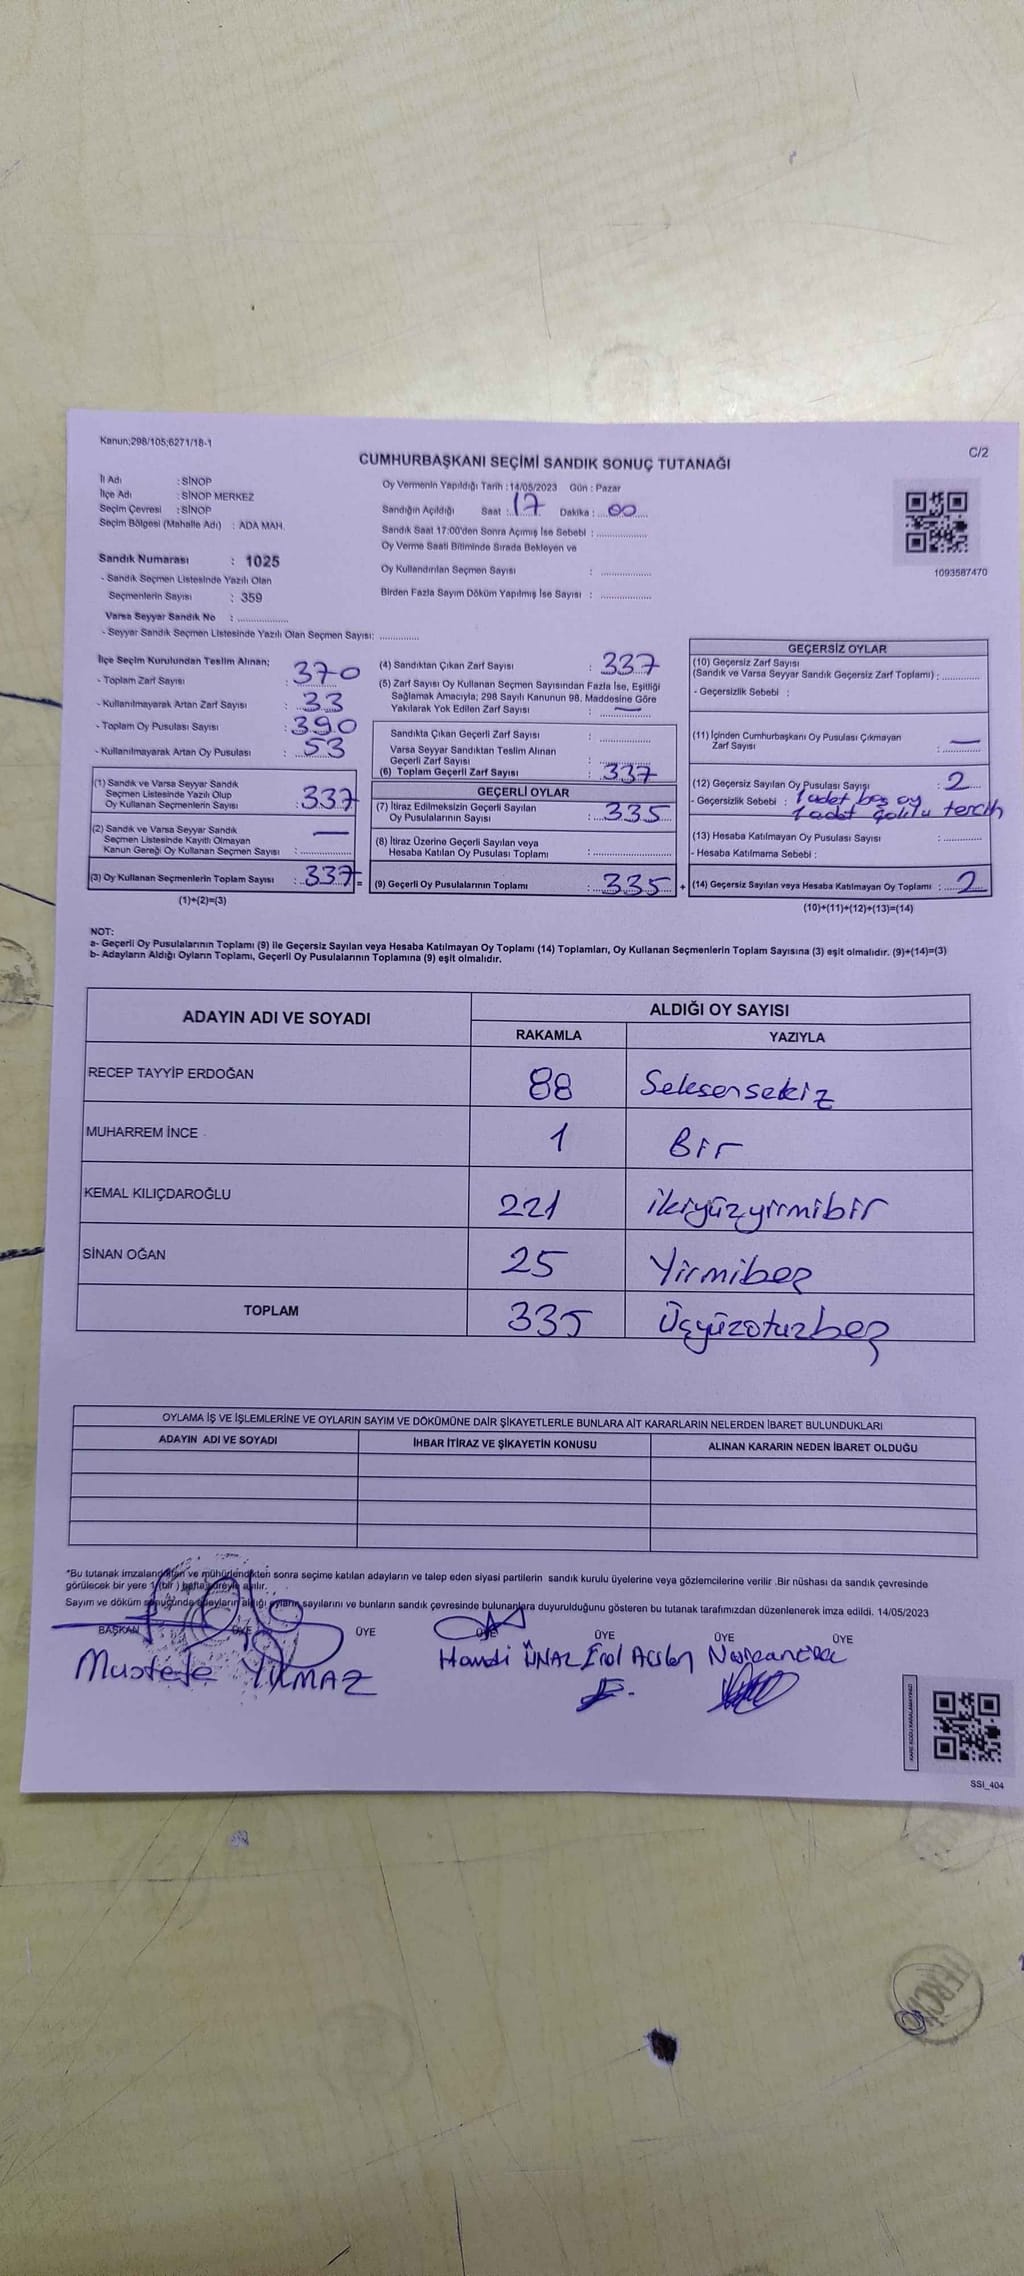 Kanun;298/105;6271/18-1
C/2
CUMHURBAŞKANI SEÇİMİ SANDIK SONUÇ TUTANAĞI
İl Adı : SİNOP
İlçe Adı : SİNOP MERKEZ
Seçim Çevresi : SİNOP
Seçim Bölgesi (Mahalle Adı) : ADA MAH.
Sandık Numarası : 1025
- Sandık Seçmen Listesinde Yazılı Olan
Seçmenlerin Sayısı : 359
Varsa Seyyar Sandık No : ..............
- Seyyar Sandık Seçmen Listesinde Yazılı Olan Seçmen Sayısı: ...........
Oy Vermenin Yapıldığı Tarih : 14/05/2023 Gün : Pazar
Sandığın Açıldığı Saat : 17 Dakika : 00
Sandık Saat 17:00'den Sonra Açmış İse Sebebi : ..............
Oy Verme Saati Bitiminde Sırada Bekleyen ve
Oy Kullandırılan Seçmen Sayısı : ..............
Birden Fazla Sayım Döküm Yapılmış İse Sayısı : ..............
1093587470
İlçe Seçim Kurulundan Teslim Alınan;
- Toplam Zarf Sayısı : 370
- Kullanılmayarak Artan Zarf Sayısı : 33
- Toplam Oy Pusulası Sayısı : 390
- Kullanılmayarak Artan Oy Pusulası : 53
(1) Sandık ve Varsa Seyyar Sandık
Seçmen Listesinde Yazılı Olup
Oy Kullanan Seçmenlerin Sayısı : 337
(2) Sandık ve Varsa Seyyar Sandık
Seçmen Listesinde Kayıtlı Olmayan
Kanun Gereği Oy Kullanan Seçmen Sayısı : —
(3) Oy Kullanan Seçmenlerin Toplam Sayısı : 337 =
(1)+(2)=(3)
(4) Sandıktan Çıkan Zarf Sayısı : 337
(5) Zarf Sayısı Oy Kullanan Seçmen Sayısından Fazla İse, Eşitliği
Sağlamak Amacıyla; 298 Sayılı Kanunun 98. Maddesine Göre
Yakılarak Yok Edilen Zarf Sayısı : —
Sandıkta Çıkan Geçerli Zarf Sayısı : ..............
Varsa Seyyar Sandıktan Teslim Alınan
Geçerli Zarf Sayısı : ..............
(6) Toplam Geçerli Zarf Sayısı : 337
GEÇERLİ OYLAR
(7) İtiraz Edilmeksizin Geçerli Sayılan
Oy Pusulalarının Sayısı : 335
(8) İtiraz Üzerine Geçerli Sayılan veya
Hesaba Katılan Oy Pusulası Toplamı : ..............
(9) Geçerli Oy Pusulalarının Toplamı : 335 +
GEÇERSİZ OYLAR
(10) Geçersiz Zarf Sayısı
(Sandık ve Varsa Seyyar Sandık Geçersiz Zarf Toplamı) : ...........
- Geçersizlik Sebebi :
(11) İçinden Cumhurbaşkanı Oy Pusulası Çıkmayan
Zarf Sayısı : —
(12) Geçersiz Sayılan Oy Pusulası Sayısı : 2
- Geçersizlik Sebebi : 1 adet boş oy
1 adet çoklu tercih
(13) Hesaba Katılmayan Oy Pusulası Sayısı : ...........
- Hesaba Katılmama Sebebi :
(14) Geçersiz Sayılan veya Hesaba Katılmayan Oy Toplamı : 2
(10)+(11)+(12)+(13)=(14)
NOT:
a- Geçerli Oy Pusulalarının Toplamı (9) ile Geçersiz Sayılan veya Hesaba Katılmayan Oy Toplamı (14) Toplamları, Oy Kullanan Seçmenlerin Toplam Sayısına (3) eşit olmalıdır. (9)+(14)=(3)
b- Adayların Aldığı Oyların Toplamı, Geçerli Oy Pusulalarının Toplamına (9) eşit olmalıdır.
ADAYIN ADI VE SOYADI ALDIĞI OY SAYISI
RAKAMLA YAZIYLA
RECEP TAYYİP ERDOĞAN 88 Seksensekiz
MUHARREM İNCE 1 Bir
KEMAL KILIÇDAROĞLU 221 ikiyüzyirmibir
SİNAN OĞAN 25 Yirmibeş
TOPLAM 335 Üçyüzotuzbeş
OYLAMA İŞ VE İŞLEMLERİNE VE OYLARIN SAYIM VE DÖKÜMÜNE DAİR ŞİKAYETLERLE BUNLARA AİT KARARLARIN NELERDEN İBARET BULUNDUKLARI
ADAYIN ADI VE SOYADI İHBAR İTİRAZ VE ŞİKAYETİN KONUSU ALINAN KARARIN NEDEN İBARET OLDUĞU
*Bu tutanak imzalandıktan ve mühürlendikten sonra seçime katılan adayların ve talep eden siyasi partilerin sandık kurulu üyelerine veya gözlemcilerine verilir .Bir nüshası da sandık çevresinde
görülecek bir yere 1 (bir ) hafta süreyle asılır.
Sayım ve döküm sonuçunda adayların aldığı oyların sayılarını ve bunların sandık çevresinde bulunanlara duyurulduğunu gösteren bu tutanak tarafımızdan düzenlenerek imza edildi. 14/05/2023
BAŞKAN ÜYE ÜYE ÜYE ÜYE ÜYE ÜYE
Mustafa YILMAZ Hamdi ÜNAL Erol
KARE KODU KARALAMAYINIZ!
SSI_404
TERCİH